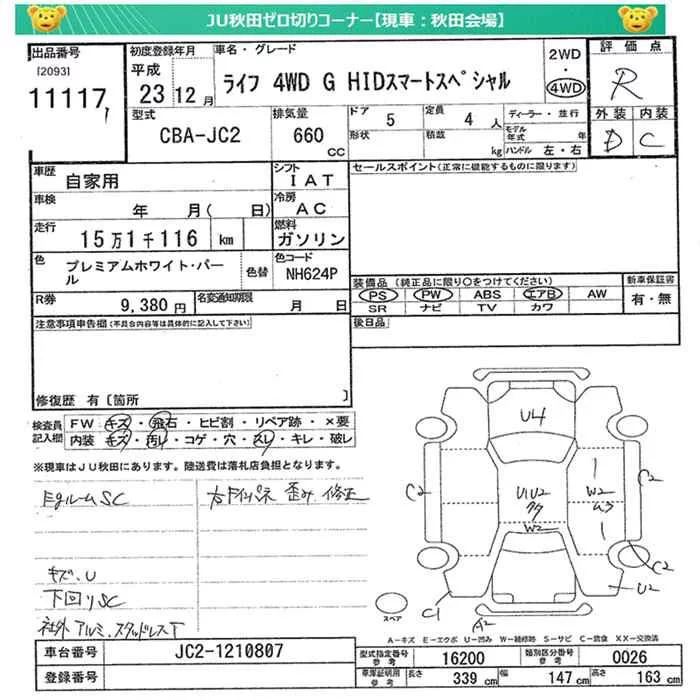 JU秋田ゼロ切りコーナー【現車：秋田会場】
出品番号
[2093]
11117
初度登録年月
平成
23 12 月
車名・グレード
ライフ 4WD G HIDスマートスペシャル
2WD
・
4WD
評価点
R
型式
CBA-JC2
排気量
660
CC
ドア
5
形状
定員
4 人
積載
kg
ディーラー・並行
モデル年式 年
ハンドル 左・右
外装 内装
D C
車歴
自家用
シフト
IAT
セールスポイント(正常に機能するものに限ります)
車検
年 月( 日)
冷房
AC
走行
15万1千116 km
燃料
ガソリン
色
プレミアムホワイト・パール
色替
色コード
NH624P
装備品 (純正品に限り○をつけてください)
PS PW ABS エアB AW
SR ナビ TV カワ
新車保証書
有・無
R券
9,380 円
名変通知期限
月 日
注意事項申告欄(不具合内容等は具体的に記入して下さい)
後日品
修復歴 有〔箇所 〕
検査員記入欄
FW キズ・飛石・ヒビ割・リペア跡・×要
内装 キズ・汚レ・コゲ・穴・スレ・キレ・破レ
※現車はJU秋田にあります。陸送費は落札店負担となります。
EgルームSC
キズ、U
下回りSC
社外アルミ、スタッドレスT
U4
C2
U1U2
W2
1
W2
C2
1
C2
U2
C1
A2
スペア
A-キズ E-エクボ U-凹み W-補修跡 S-サビ C-腐食 XX-交換済
車台番号
JC2-1210807
型式指定番号
参考
16200
類別区分番号
参考
0026
登録番号
車庫証明用
参考
長さ
339 cm
幅
147 cm
高さ
163 cm